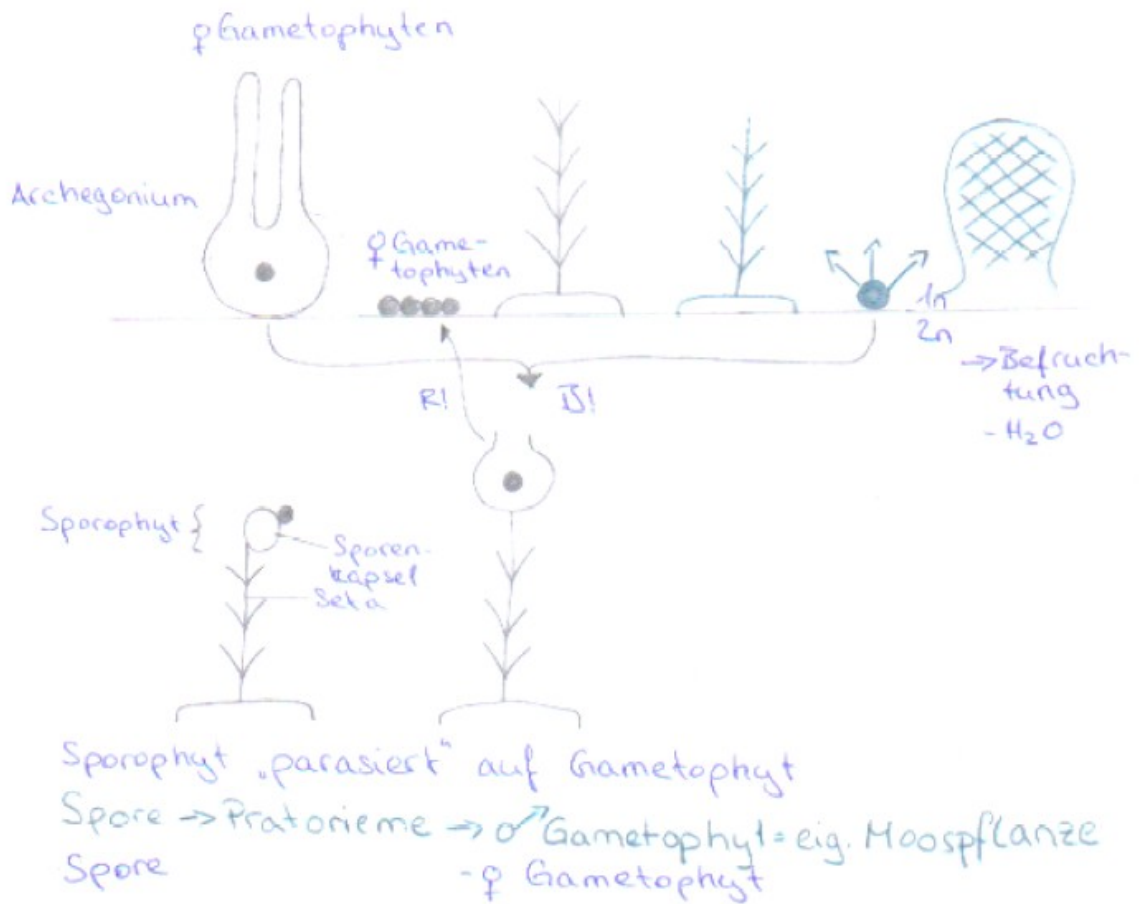 ♀Gametophyten
Archegonium
♀Game-
tophyten
1n
2n
→Befruch-
tung
- H₂O
R!
B!
Sporophyt {
Sporen-
kapsel
Seta
Sporophyt „parasiert“ auf Gametophyt
Spore → Pratorieme → ♂ Gametophyt = eig. Moospflanze
Spore - ♀ Gametophyt